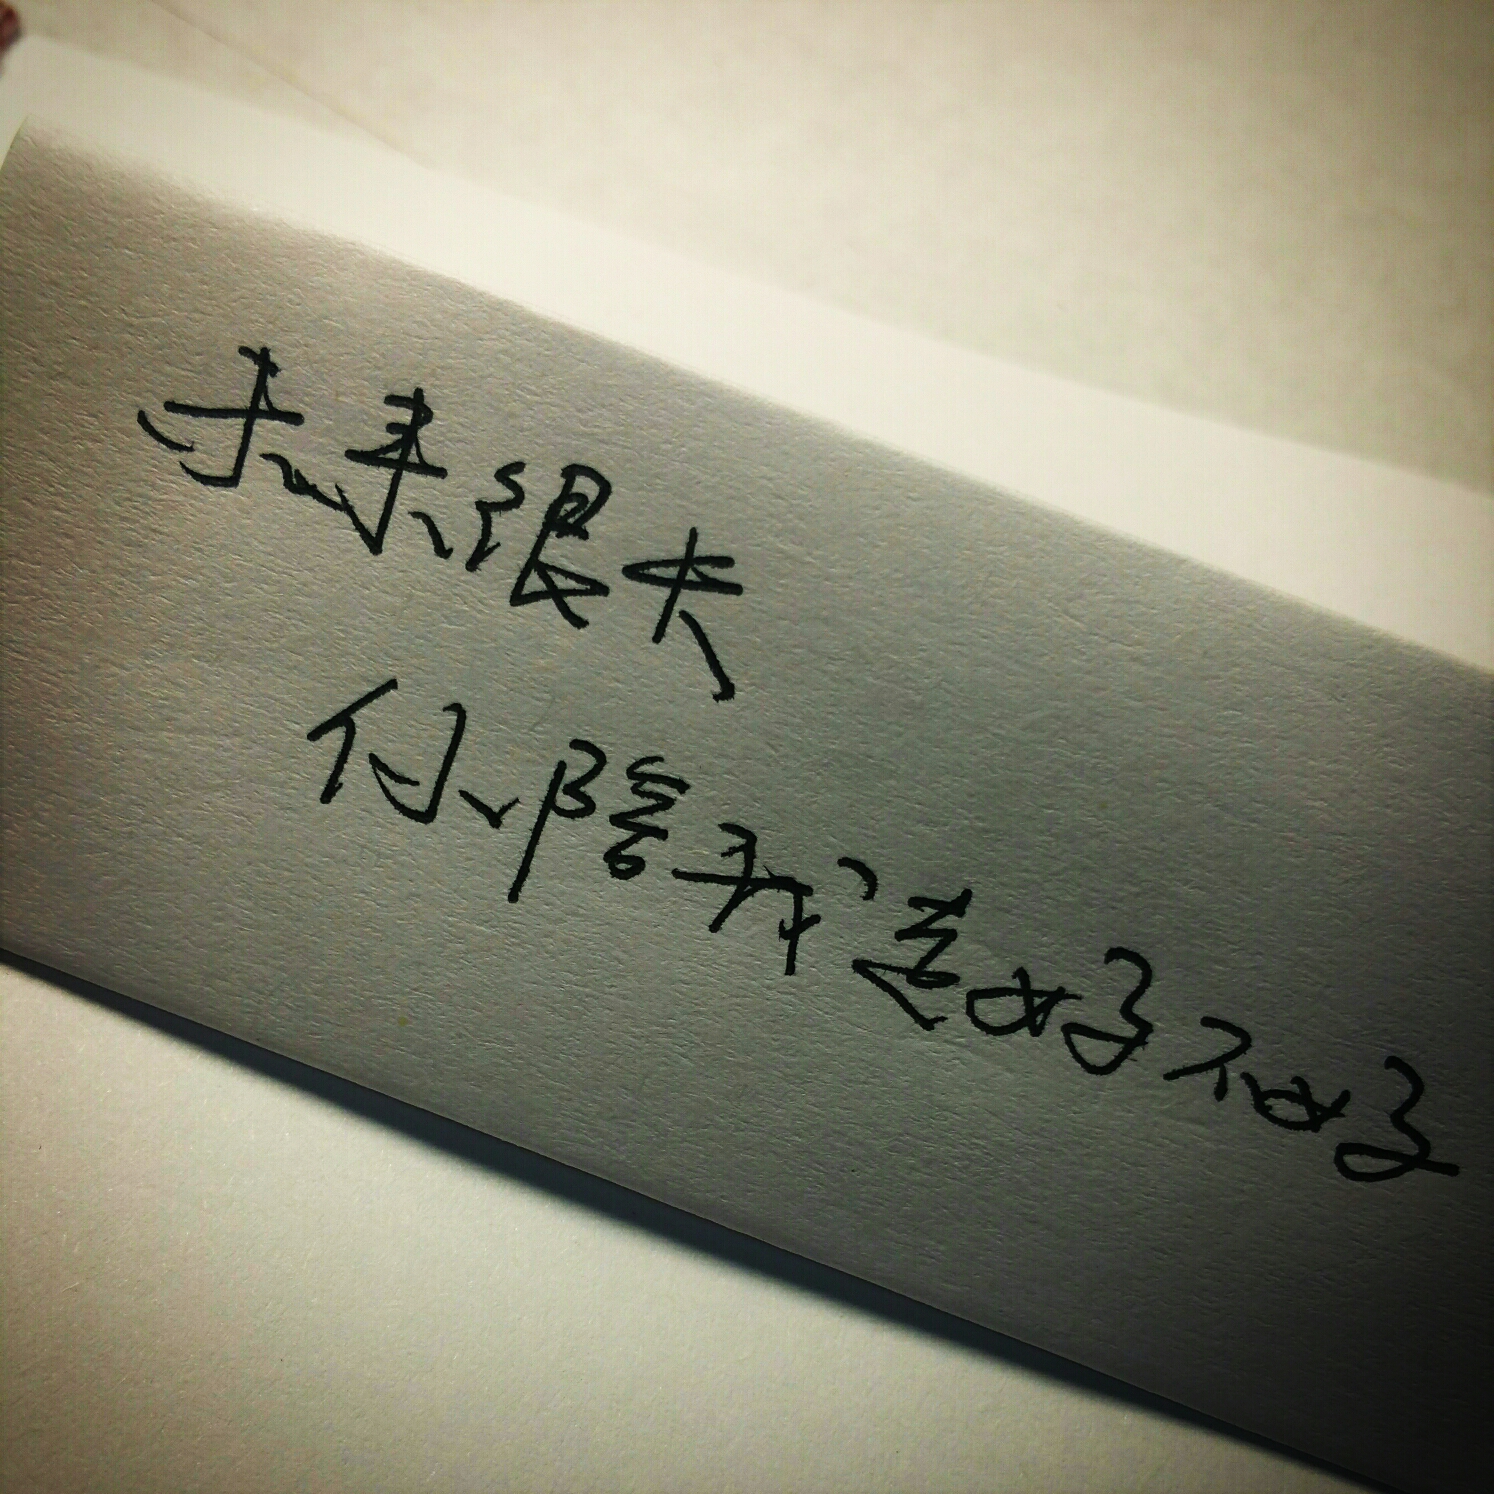 未来很长
你陪我走好不好